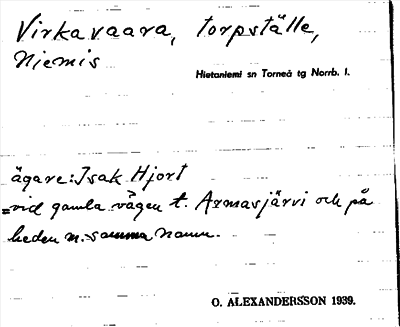 Virkavaara, torpställe,
Niemis
Hietaniemi sn Torneå tg Norrb. l.
ägare: Isak Hjort
=vid gamla vägen t. Armasjärvi och på
heden m. samma namn.
O. ALEXANDERSSON 1939.